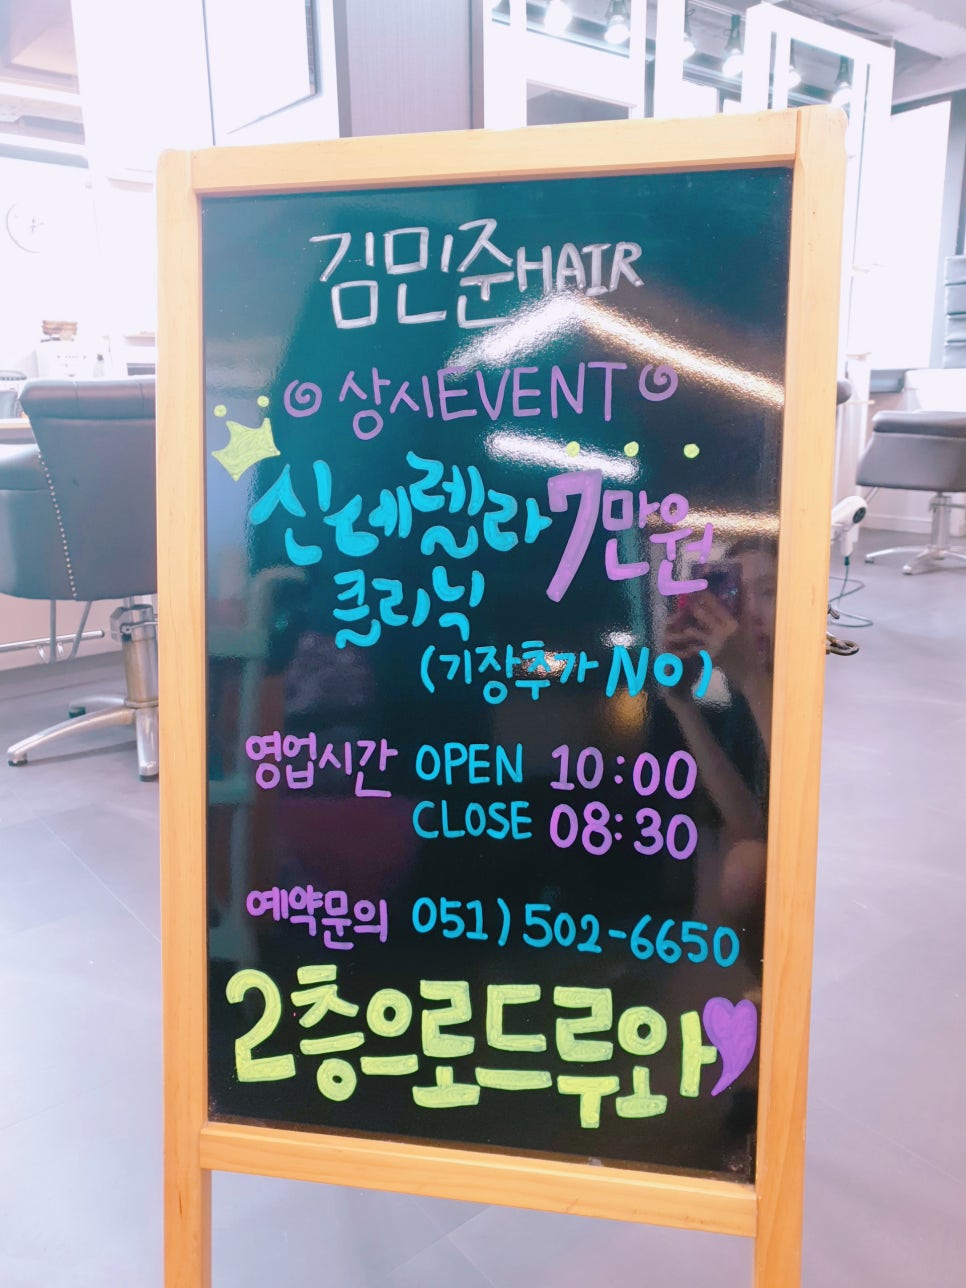 김민준HAIR
상시EVENT
신데렐라 7만원
클리닉
(기장추가 NO)
영업시간 OPEN 10:00
CLOSE 08:30
예약문의 051)502-6650
2층으로드루와